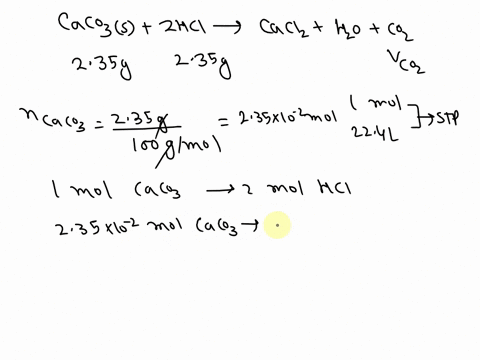 CaCO3(s) + 2HCl → CaCl2 + H2O + CO2
2.35g 2.35g VCO2
nCaCO3 = 2.35g / 100 g/mol = 2.35×10-2 mol 1 mol 22.4L → STP
1 mol CaCO3 → 2 mol HCl
2.35×10-2 mol CaCO3 →